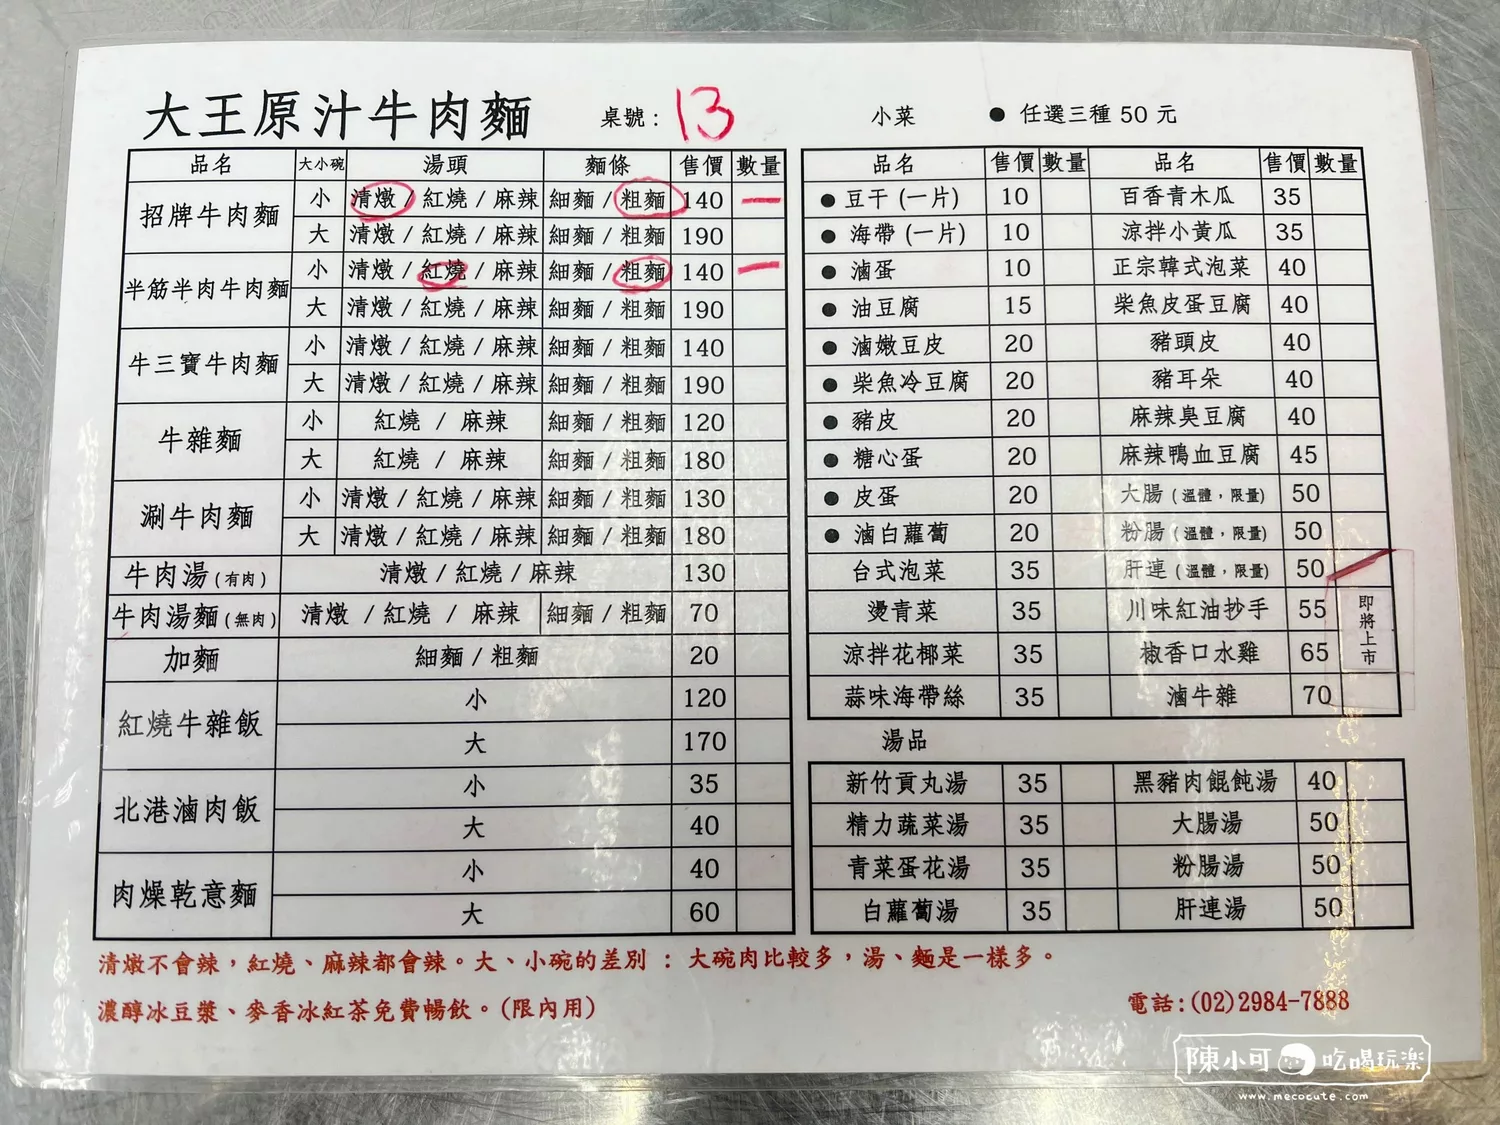 大王原汁牛肉麵 桌號: 13
品名 大小碗 湯頭 麵條 售價 數量
招牌牛肉麵 小 清燉 / 紅燒 / 麻辣 細麵 / 粗麵 140 一
大 清燉 / 紅燒 / 麻辣 細麵 / 粗麵 190
半筋半肉牛肉麵 小 清燉 / 紅燒 / 麻辣 細麵 / 粗麵 140 一
大 清燉 / 紅燒 / 麻辣 細麵 / 粗麵 190
牛三寶牛肉麵 小 清燉 / 紅燒 / 麻辣 細麵 / 粗麵 140
大 清燉 / 紅燒 / 麻辣 細麵 / 粗麵 190
牛雜麵 小 紅燒 / 麻辣 細麵 / 粗麵 120
大 紅燒 / 麻辣 細麵 / 粗麵 180
涮牛肉麵 小 清燉 / 紅燒 / 麻辣 細麵 / 粗麵 130
大 清燉 / 紅燒 / 麻辣 細麵 / 粗麵 180
牛肉湯 (有肉) 清燉 / 紅燒 / 麻辣 130
牛肉湯麵 (無肉) 清燉 / 紅燒 / 麻辣 細麵 / 粗麵 70
加麵 細麵 / 粗麵 20
紅燒牛雜飯 小 120
大 170
北港滷肉飯 小 35
大 40
肉燥乾意麵 小 40
大 60
小菜 ● 任選三種 50 元
品名 售價 數量 品名 售價 數量
● 豆干 (一片) 10 百香青木瓜 35
● 海帶 (一片) 10 涼拌小黃瓜 35
● 滷蛋 10 正宗韓式泡菜 40
● 油豆腐 15 柴魚皮蛋豆腐 40
● 滷嫩豆皮 20 豬頭皮 40
● 柴魚冷豆腐 20 豬耳朵 40
● 豬皮 20 麻辣臭豆腐 40
● 糖心蛋 20 麻辣鴨血豆腐 45
● 皮蛋 20 大腸 (溫體,限量) 50
● 滷白蘿蔔 20 粉腸 (溫體,限量) 50
台式泡菜 35 肝連 (溫體,限量) 50
燙青菜 35 川味紅油抄手 55 即將上市
涼拌花椰菜 35 椒香口水雞 65
蒜味海帶絲 35 滷牛雜 70
湯品
新竹貢丸湯 35 黑豬肉餛飩湯 40
精力蔬菜湯 35 大腸湯 50
青菜蛋花湯 35 粉腸湯 50
白蘿蔔湯 35 肝連湯 50
清燉不會辣,紅燒、麻辣都會辣。大、小碗的差別 : 大碗肉比較多,湯、麵是一樣多。
濃醇冰豆漿、麥香冰紅茶免費暢飲。(限內用)
電話:(02)2984-7888
陳小可 吃喝玩樂
www.mecocute.com